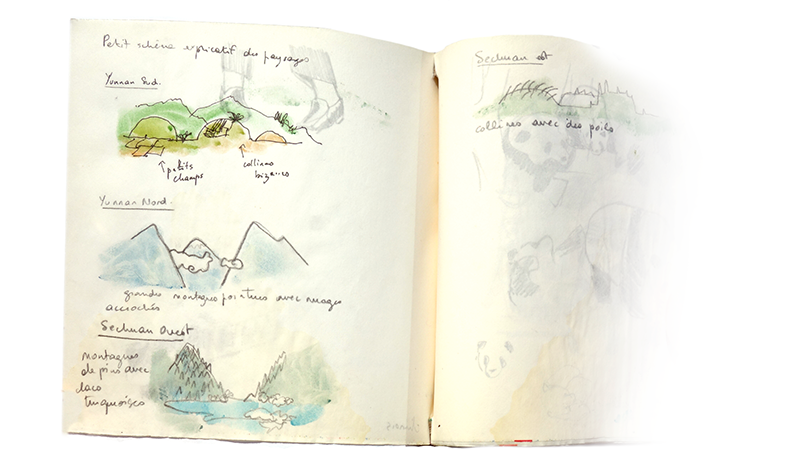 Petit schéma explicatif des paysages
Yunnan Sud.
petits
champs
collines
bizarres
Yunnan Nord.
grandes montagnes pointues avec nuages
accrochés
Sechuan Ouest
montagnes
de pins avec
lacs
turquoises
Sechuan est
collines avec des poils